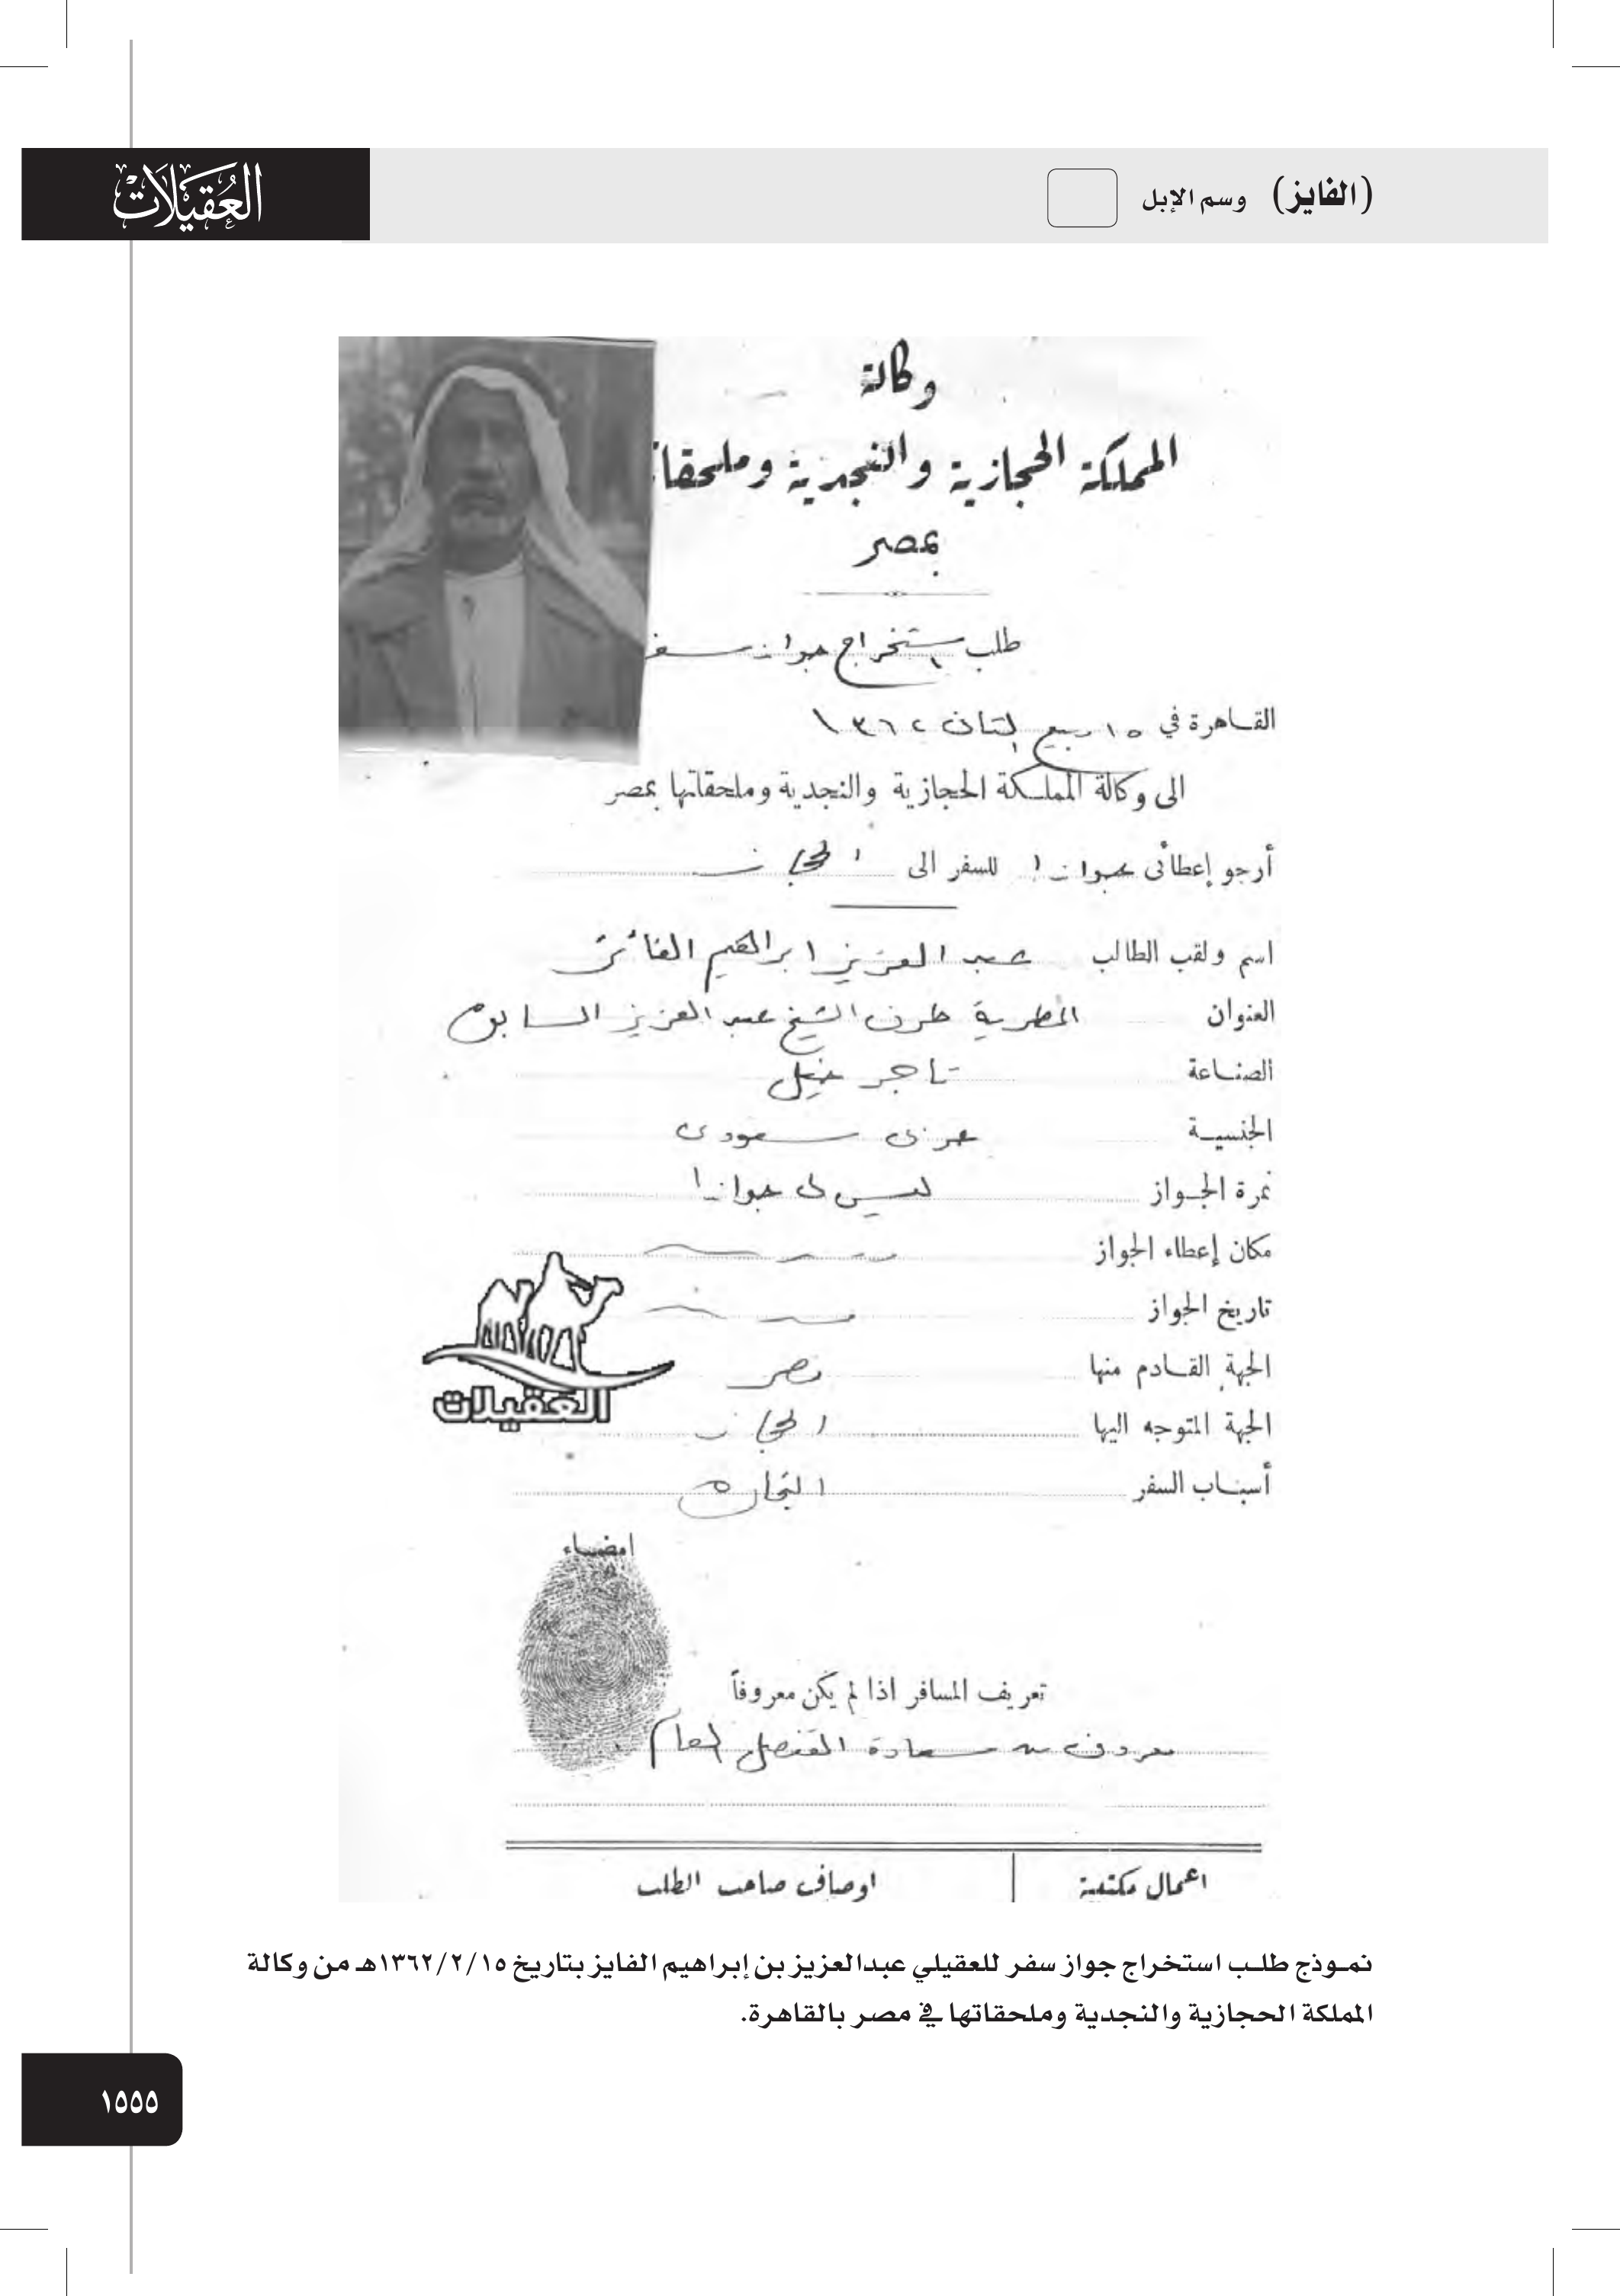 (الفايز) وسم الإبل
العقيلات
وكالة
المملكة الحجازية والنجدية وملحقا
بمصر
طلب استخراج جواز سفر
القاهرة في ١٥ ربيع الثان ١٣٦٢
الى وكالة المملكة الحجازية والنجدية وملحقاتها بمصر
أرجو إعطائى جوازا للسفر الى الحجاز
اسم ولقب الطالب عبد العزيز ابراهيم الفائز
العنوان المطرية طرف الشيخ عبد العزيز السابق
الصناعة تاجر خيل
الجنسية عربى سعودى
نمرة الجواز ليس لى جوازا
مكان إعطاء الجواز
تاريخ الجواز
الجهة القادم منها مصر
الجهة المتوجه اليها الحجاز
أسباب السفر التجاره
العقيلات
امضاء
تعريف المسافر اذا لم يكن معروفاً
معروف من سعادة القنصل العام
اعمال مكتبية
اوصاف صاحب الطلب
نموذج طلب استخراج جواز سفر للعقيلي عبدالعزيز بن إبراهيم الفايز بتاريخ ١٣٦٢/٢/١٥هـ من وكالة
المملكة الحجازية والنجدية وملحقاتها في مصر بالقاهرة.
١٥٥٥